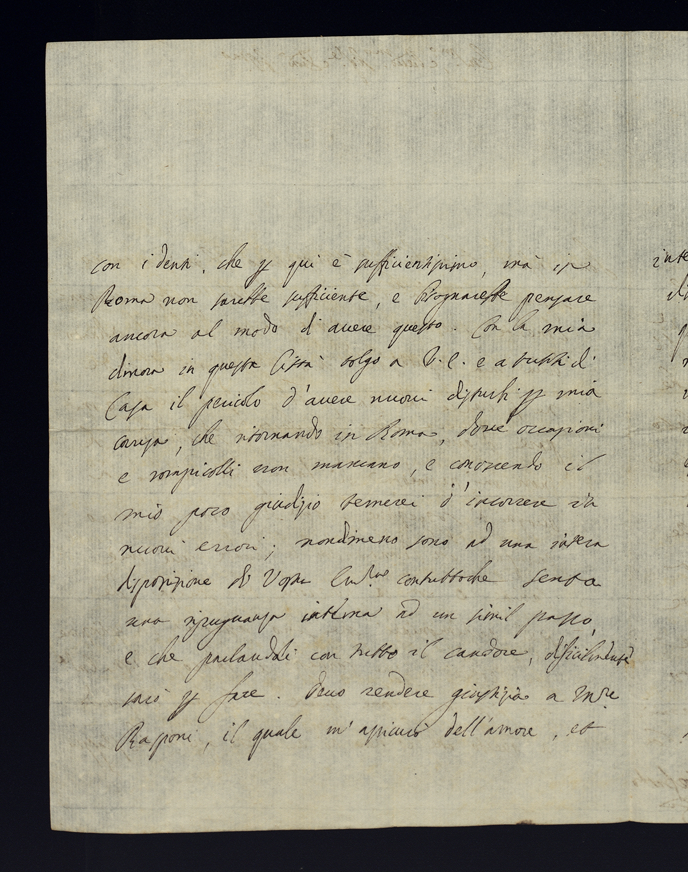 con i denti, che p qui è sufficientissimo, mà in
Roma non sarebbe sufficiente, e bisognarebbe pensare
ancora al modo di avere questo. Con la mia
dimora in questa Città tolgo a V. E. e a tutti di
Casa il pericolo d'avere nuovi disturbi p mia
causa, che ritornando in Roma, dove occasioni
e rompicolli non mancano, e conoscendo il
mio poco giudizio temerei d'incorrere in
nuovi errori; nondimeno sono ad una intera
disposizione di Vostra contuttoche senta
una ripugnanza interna ad un simil passo,
e che parlandoli con tutto il candore, dificilmente
sarò p fare. Devo rendere giustizia a Mre
Rasponi, il quale m'assicurò dell'amore, et
inte